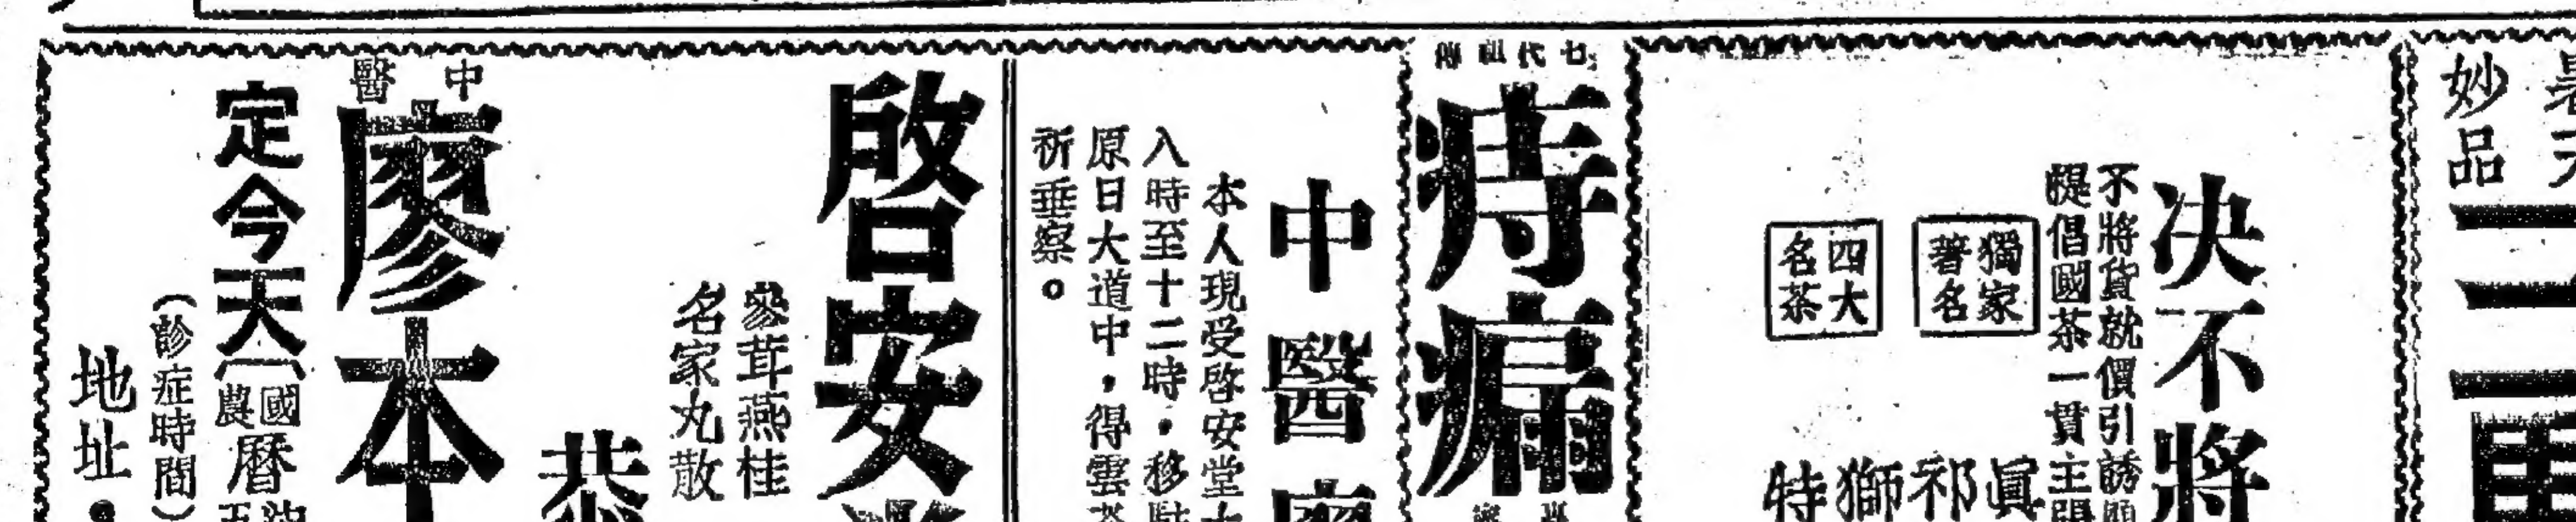 妙品
決不將
不將貨就價引誘
提倡國茶一貫主
獨家著名
四大名茶
眞
祁
獅
特
七代祖傳
痔瘺
中醫廖
本人現受啓安堂
入時至十二時，移駐
原日大道中，得雲茶
祈垂察。
啓安
參茸燕桂
名家丸散
恭
中醫
廖本
定今天
國曆
農曆
（診症時間）
地址